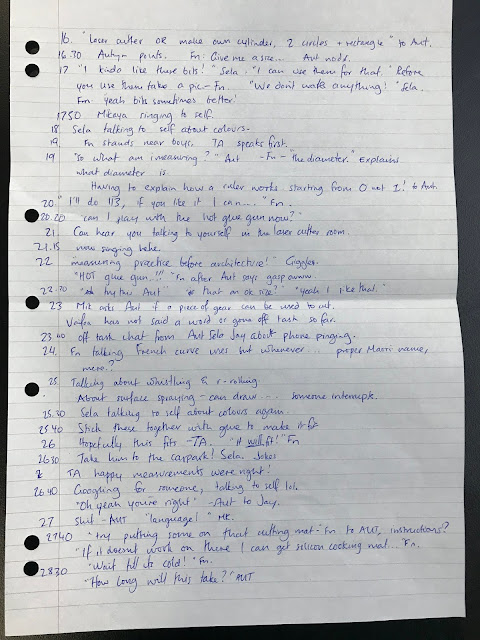 16. "laser cutter OR make own cylinder, 2 circles + rectangle" to Aut.
16.30 Autumn points. Fn: Give me a size... Aut nods.
17. "I kinda like these bits!" Sela. "I can use them for that." "Before
you use them take a pic - Fn... "We don't waste anything!" Sela.
Fn: yeah bits sometimes better!
1750 Mikaya singing to self.
18. Sela talking to self about colours.
19. Fn stands near boys. TA speaks first.
19 "So what am I measuring?" Aut - Fn - "the diameter." Explains
what diameter is
Having to explain how a ruler works starting from 0 not 1! to Aut.
20. "I'll do 1/3, if you like it I can..." Fn.
20.20 "can I play with the hot glue gun now?"
21. Can hear you talking to yourself in the laser cutter room.
21.15 now singing hehe.
22. measuring practice before architecture!" Giggles.
"HOT glue gun!!!" Fn after Aut says gasp owww
22.30 Aut" that an ok size?" "yeah I like that."
23 Mik asks Aut if a piece of gear can be used to cut.
has not said a word or gone off task so far.
23 40 off task chat from Aut Sela Jay about phone pinging.
24. Fn talking French curve uses but whenever... proper Maori name,
mere?
25. Talking about whistling & r-rolling
About surface spraying - can draw --- someone interrupts.
25.30 Sela talking to self about colours again.
25 40 Stick these together with glue to make it fit
26 Hopefully this fits - TA. "it will fit!" Fn
2630 Take him to the carpark! Sela. Jokes
TA happy measurements were right!
26 40. Googling for someone, talking to self lol.
"Oh yeah you're right" - Aut to Jay.
27 Shit - AUT "language!" MK.
2740 "try putting some on that cutting mat - Fn to AUT, instructions?
"If it doesn't work on there I can get silicon cooking mat..." Fn.
"Wait till its cold!" Fn.
2830 "How long will this take?" AUT